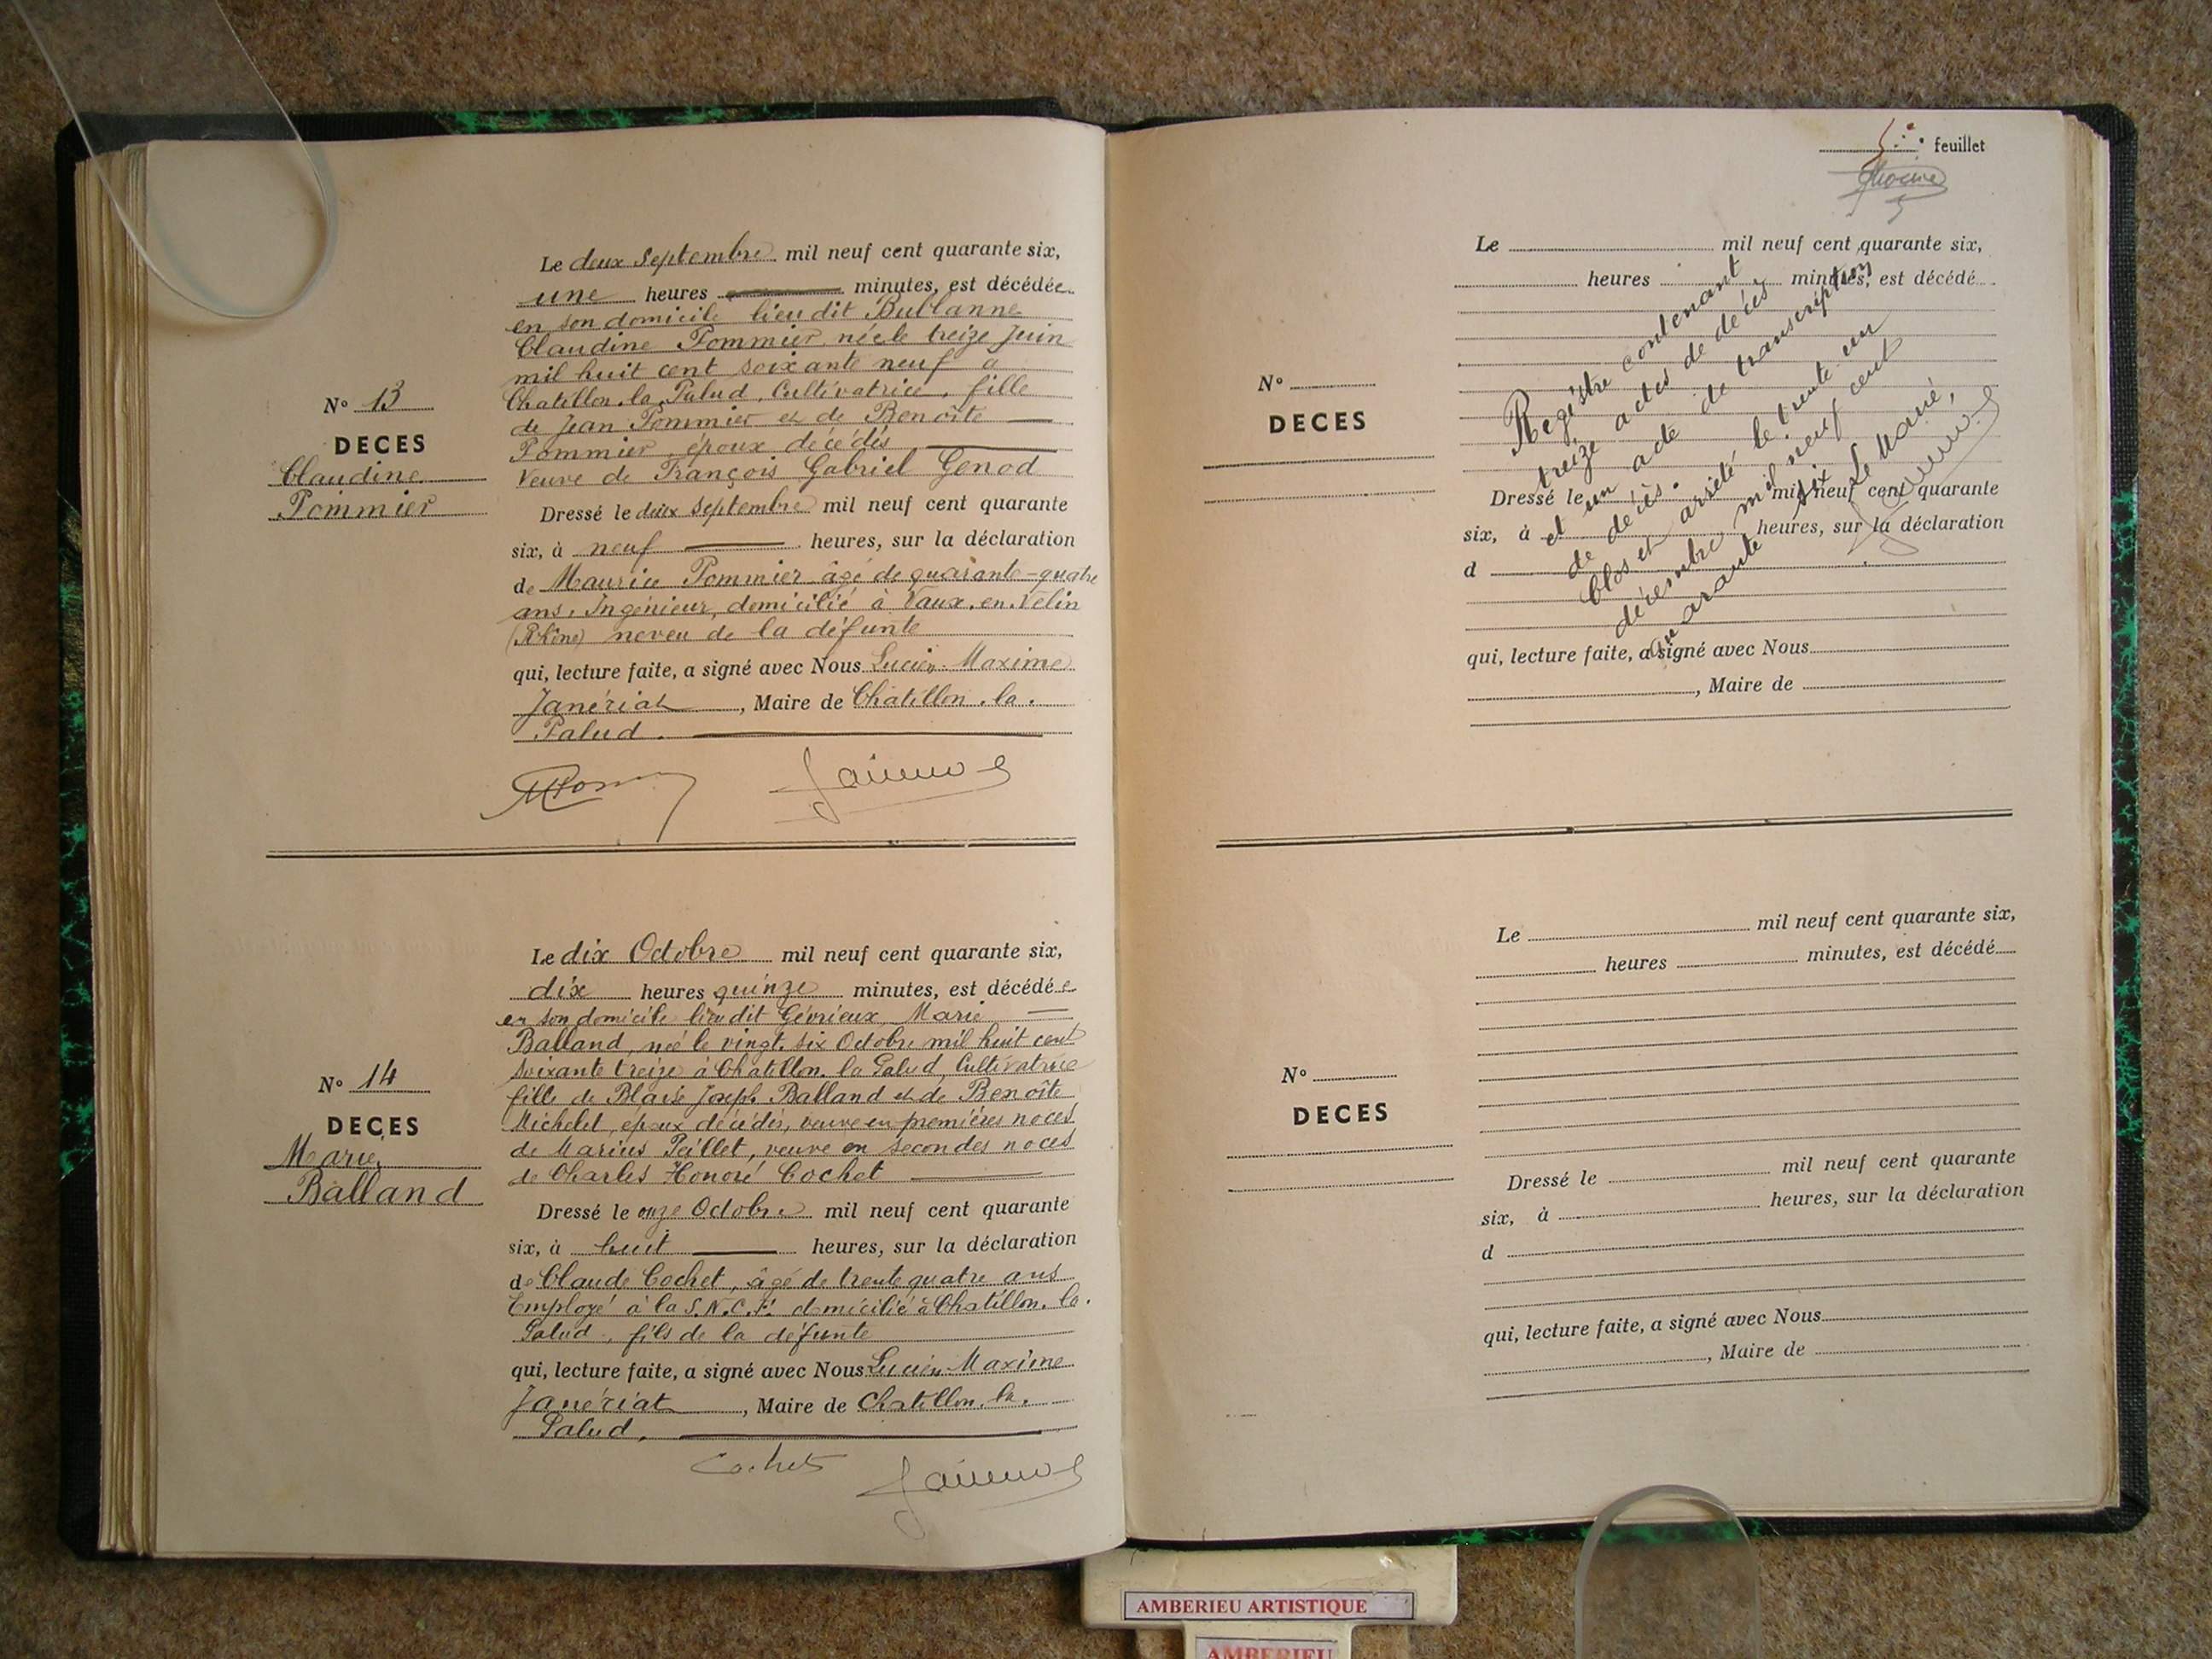 Le deux Septembre mil neuf cent quarante six,
une heures minutes, est décédée
en son domicile lieu dit Bublanne
Claudine Pommier, née le treize Juin
mil huit cent soixante neuf à
Chatillon.la.Palud, Cultivatrice, fille
de Jean Pommier et de Benoîte
Pommier, époux décédés
Veuve de François Gabriel Genod
N° 13
DECES
Claudine
Pommier
Dressé le deux Septembre mil neuf cent quarante
six, à neuf heures, sur la déclaration
de Maurice Pommier âgé de quarante-quatre
ans, Ingénieur, domicilié à Vaux.en.Velin
(Rhône) neveu de la défunte
qui, lecture faite, a signé avec Nous Lucien Maxime
Janériat, Maire de Chatillon.la.
Palud.
Le dix Octobre mil neuf cent quarante six,
dix heures quinze minutes, est décédée
en son domicile lieu dit Gévrieux, Marie
Balland, née le vingt six Octobre mil huit cent
soixante treize à Chatillon.la Palud, Cultivatrice
fille de Blaise Joseph Balland et de Benoîte
Michelet, époux décédés, veuve en premières noces
de Marius Peillet, veuve en secondes noces
de Charles Honoré Cochet
N° 14
DECES
Marie
Balland
Dressé le onze Octobre mil neuf cent quarante
six, à huit heures, sur la déclaration
de Claude Cochet, âgé de trente quatre ans
Employé à la S.N.C.F. domicilié à Chatillon.la.
Palud, fils de la défunte
qui, lecture faite, a signé avec Nous Lucien Maxime
Janériat, Maire de Chatillon.la.
Palud.
Cochet
feuillet
Le mil neuf cent quarante six,
heures minutes, est décédé
N°
DECES
Registre contenant
treize actes de décès
et un acte de transcription
de décès.
Clos et arrêté le trente un
décembre mil neuf cent
quarante six Le Maire,
Dressé le mil neuf cent quarante
six, à heures, sur la déclaration
d
qui, lecture faite, a signé avec Nous
, Maire de
Le mil neuf cent quarante six,
heures minutes, est décédé
N°
DECES
Dressé le mil neuf cent quarante
six, à heures, sur la déclaration
d
qui, lecture faite, a signé avec Nous
, Maire de
AMBERIEU ARTISTIQUE
AMBERIEU